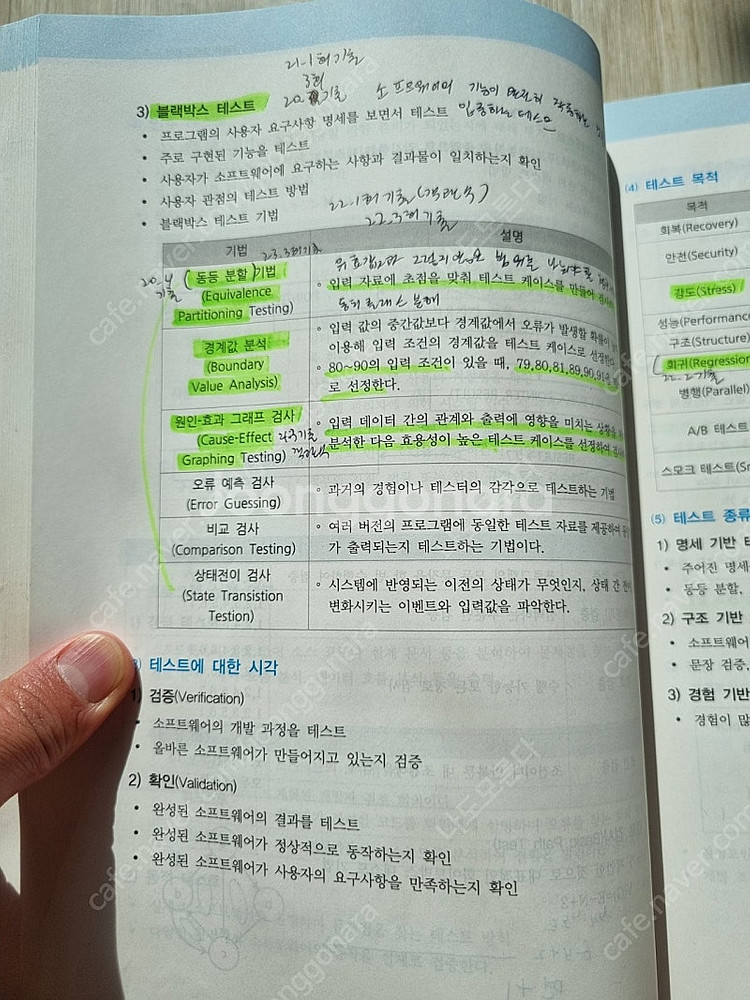 21-1회기출
3회
20.
기출 소프트웨어의 기능이
3) 블랙박스 테스트
• 프로그램의 사용자 요구사항 명세를 보면서 테스트
• 주로 구현된 기능을 테스트
• 사용자가 소프트웨어에 요구하는 사항과 결과물이 일치하는지 확인
• 사용자 관점의 테스트 방법
• 블랙박스 테스트 기법
22.1회기출
22.3회기출
기법 23.3회기출 설명
동등 분할 기법
(Equivalence
Partitioning Testing)
• 입력 자료에 초점을 맞춰 테스트 케이스를 만들어
경계값 분석
(Boundary
Value Analysis)
• 입력 값의 중간값보다 경계값에서 오류가 발생할 확률이
이용해 입력 조건의 경계값을 테스트 케이스로 선정
• 80~90의 입력 조건이 있을 때, 79,80,81,89,90,91
로 선정한다.
원인-효과 그래프 검사
(Cause-Effect
Graphing Testing)
• 입력 데이터 간의 관계와 출력에 영향을 미치는 상황을
분석한 다음 효용성이 높은 테스트 케이스를 선정하여
오류 예측 검사
(Error Guessing)
• 과거의 경험이나 테스터의 감각으로 테스트하는 기법
비교 검사
(Comparison Testing)
• 여러 버전의 프로그램에 동일한 테스트 자료를 제공하여
가 출력되는지 테스트하는 기법이다.
상태전이 검사
(State Transistion
Testion)
• 시스템에 반영되는 이전의 상태가 무엇인지, 상태 간
변화시키는 이벤트와 입력값을 파악한다.
테스트에 대한 시각
1) 검증(Verification)
• 소프트웨어의 개발 과정을 테스트
• 올바른 소프트웨어가 만들어지고 있는지 검증
2) 확인(Validation)
• 완성된 소프트웨어의 결과를 테스트
• 완성된 소프트웨어가 정상적으로 동작하는지 확인
• 완성된 소프트웨어가 사용자의 요구사항을 만족하는지 확인
(4) 테스트 목적
목적
회복(Recovery)
안전(Security)
강도(Stress)
성능(Performance
구조(Structure)
회귀(Regression
병행(Parallel)
A/B 테스트
스모크 테스트(
(5) 테스트 종류
1) 명세 기반
• 주어진 명세
• 동등 분할,
2) 구조 기반
• 소프트웨어
• 문장 검증,
3) 경험 기반
• 경험이 많